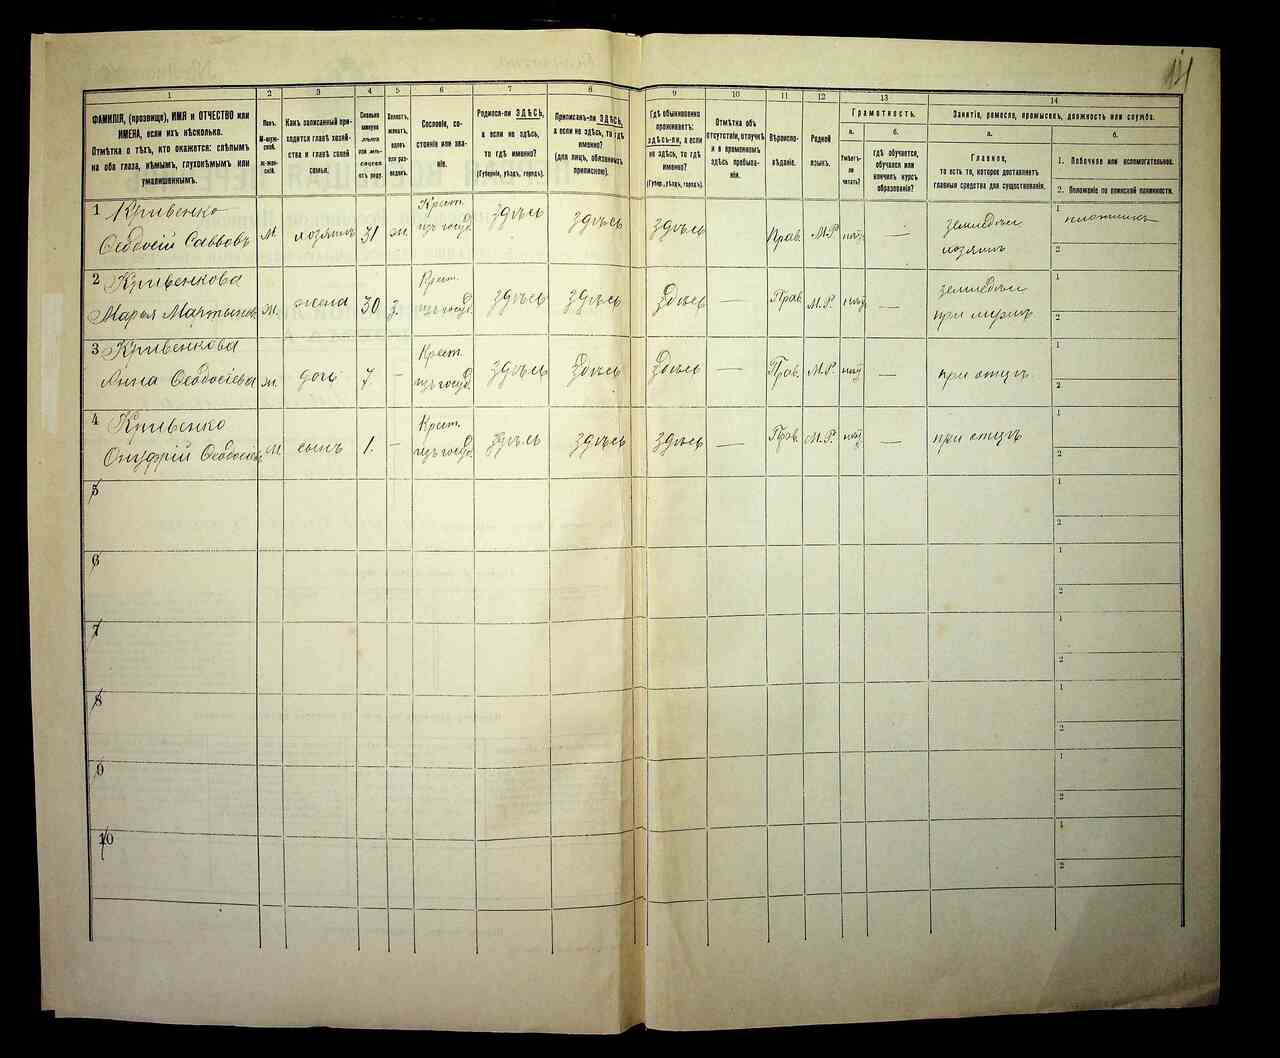 141
1 2 3 4 5 6 7 8 9 10 11 12 13 14
ФАМИЛІЯ, (прозвище), ИМЯ и ОТЧЕСТВО или
ИМЕНА, если ихъ нѣсколько.
Отмѣтка о тѣхъ, кто окажется: слѣпымъ
на оба глаза, нѣмымъ, глухонѣмымъ или
умалишеннымъ.
Полъ.
М-муж-
ской.
Ж-жен-
скій.
Какъ записанный при-
ходится главѣ хозяй-
ства и главѣ своей
семьи.
Сколько
минуло
лѣтъ
или мѣ-
сяцевъ
отъ роду.
Холостъ,
женатъ,
вдовъ
или раз-
веденъ.
Сословіе, со-
стояніе или зва-
ніе.
Родился-ли ЗДѢСЬ,
а если не здѣсь,
то гдѣ именно?
(Губернія, уѣздъ, городъ).
Приписанъ-ли ЗДѢСЬ,
а если не здѣсь, то гдѣ
именно?
(для лицъ, обязанныхъ
припискою).
Гдѣ обыкновенно
проживаетъ:
здѣсь-ли, а если
не здѣсь, то гдѣ
именно?
(Губер., уѣздъ, городъ).
Отмѣтка объ
отсутствіи, отлучкѣ
и о временномъ
здѣсь пребыва-
ніи.
Вѣроиспо-
вѣданіе.
Родной
языкъ.
Грамотность.
а. б.
Умѣетъ-
ли
читать?
гдѣ обучается,
обучался или
кончилъ курсъ
образованія?
Занятіе, ремесло, промыселъ, должность или служба.
а. б.
Главное,
то есть то, которое доставляетъ
главныя средства для существованія.
1. Побочное или вспомогательное.
2. Положеніе по воинской повинности.
1 Кривенко Крест. здѣсь здѣсь здѣсь земледѣл. 1 плотникъ
Ѳеодосій Саввовъ м. хозяинъ 31 ж. изъ госуд. Прав. М.Р. нѣтъ — хозяинъ 2
2 Кривенкова Крест. земледѣл. 1
Марья Мартынов. ж. жена 30 з. изъ госуд. здѣсь здѣсь здѣсь — Прав. М.Р. нѣтъ — при мужѣ 2
3 Кривенкова Крест. 1
Анна Ѳеодосіева ж. дочь 7 — изъ госуд. здѣсь здѣсь здѣсь Прав. М.Р. нѣтъ — при отцѣ 2
4 Кривенко Крест. 1
Онуфрій Ѳеодосіев м сынъ 1. — изъ госуд. здѣсь здѣсь здѣсь — Прав. М.Р. нѣтъ — при отцѣ 2
5 1
2
6 1
2
7 1
2
8 1
2
9 1
2
10 1
2